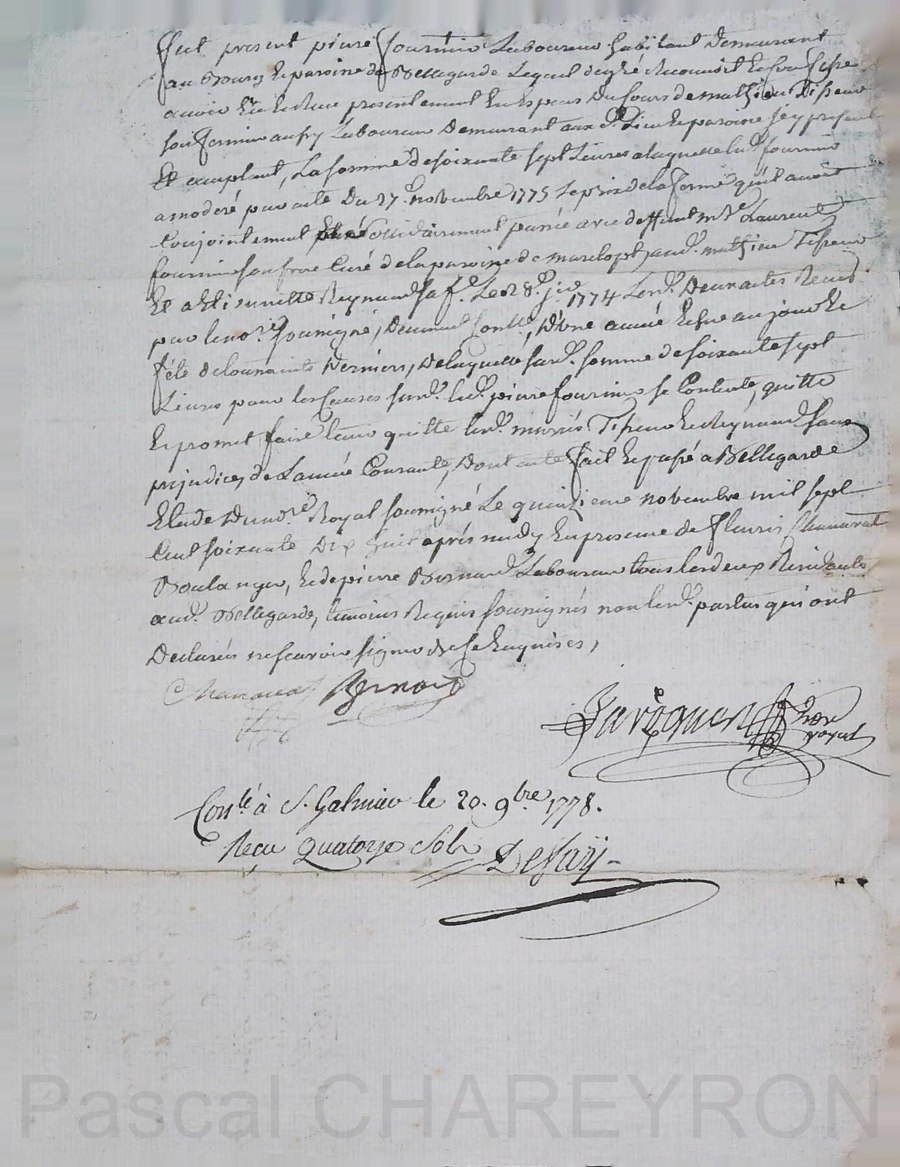 fut present pierre fournier Laboureur habitant Demeurant
au Bourg et paroisse de Bellegarde Lequel de gré reconnoit et confesse
avoir Eté et Receu presentement En Especes Du Cours de mathieu Tisseur
son fermier aussy Laboureur Demeurant aux d. Lieu et paroisse jcy present
Et acceptant, La somme de soixante sept Livres a laquelle led. fournier
a moderé par acte Du 27e novembre 1775 Le prix de la ferme qu'il avoit
Conjointement solidairement passée avec deffunt mre Laurent
fournier son frere Curé de la paroisse de marclopt, aud. mathieu Tisseur
Et a Reymand sa fe. Le 28e 1774 Lesd. Deux actes Receus
par le nore soussigné, Deument Contlé, D'une année Echue au jour Et
fête de toussaints Derniere, De laquelle susd. somme de soixante sept
Livres pour les Causes susd. led. pierre fournier se Contente, quitte
Et promet faire tenir quitte lesd. mariés Tisseur Et Reymand sans
prejudice de L'année Courante, Dont acte fait Et passé a Bellegarde
Etude Du nore Royal soussigné Le quinzieme novembre mil sept
Cent soixante Dix huit après midy En presence de fleuris Chanavat
Boulanger, Et de pierre Bernard Laboureur tous les deux Residants
aud. Bellegarde, temoins Requis soussignés non lesd. parties qui ont
Declarés ne scavoir signer de ce Enquises,
Chanavat Bernard
Javogues nore
royal
Conlé à St. Galmier le 20. 9bre 1778.
Recu quatorze Sols
Pascal CHAREYRON